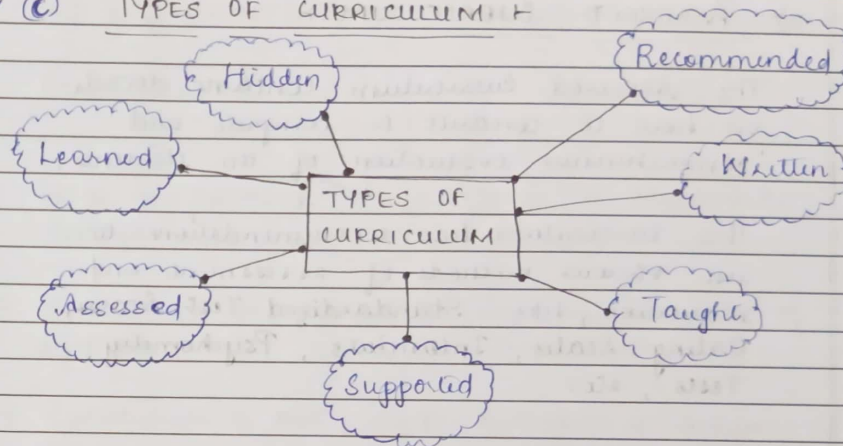 (C) TYPES OF CURRICULUM :-
Hidden
Recommended
Learned
Written
TYPES OF
CURRICULUM
Assessed
Taught
Supported